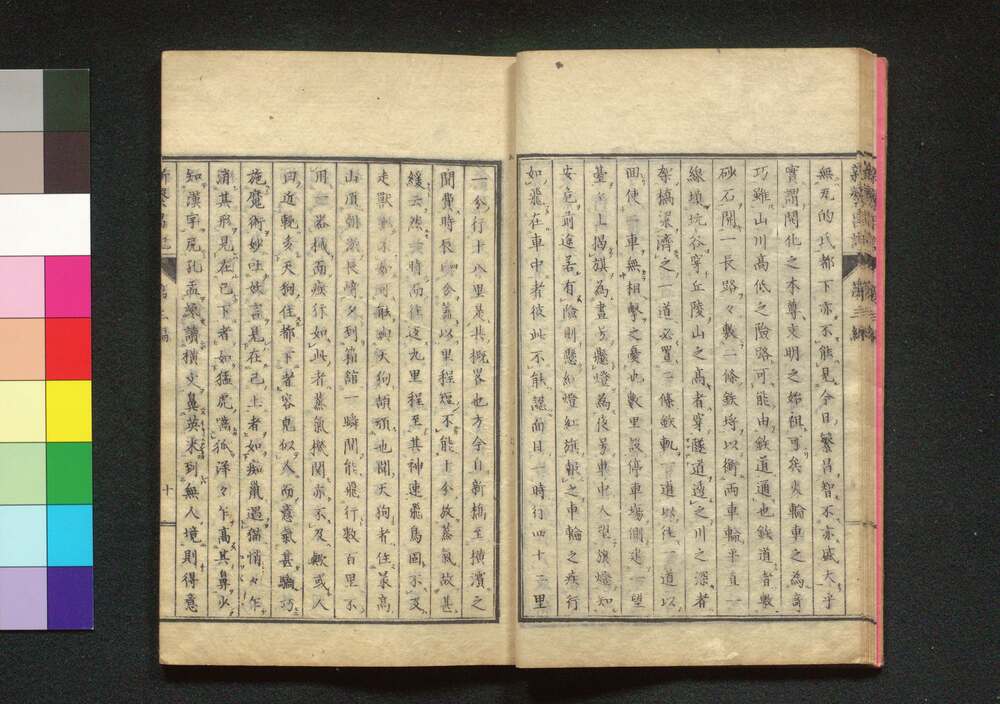 無尤的氏都下亦不能見今日繁昌智不亦盛大乎
實謂開化之本尊文明之始祖可矣火輪車之為奇
巧雖山川高低之險路可能由鉄道通也鉄道者敷
砂石開一長路々敷一條鉄埒以銜両車輪平直一
線填坑谷穿丘陵山之高者穿隧道過之川之深者
架橋梁濟之一道必置二條鉄軌一道以往一道以
回使車無相擊之憂也數里設停車場側建一望
臺上揭旗為晝号懸燈為夜号車中人望旗燈知
安危前途若有險則懸紅燈紅旗報之車輪之疾行
如飛在車中者彼此不能認面目一時行四十二里
一分行十八里是其概畧也方今自新橋至橫濱之
間費時長 里程短不能十分放蒸氣故甚
緩云然 時而往返九里程至其神速飛鳥固不及
走獸 能與天狗頡頏也聞天狗者住最高
山頂朝發長崎夕到箱舘一瞬間能飛行數百里不
用一器械而疾行如此者蒸氣機関亦不及歟或人
曰近輓多天狗住都下者容皃似人而意氣甚驕巧
施魔術妙吐妖言是在己上者如痴鼠遇猫悄々乍
潜其形見在己下者如猛虎嚙狐洋々乍高其鼻少
知漢字尻孔孟纔讀横文鼻英米到無人境則得意
新繁昌記 十